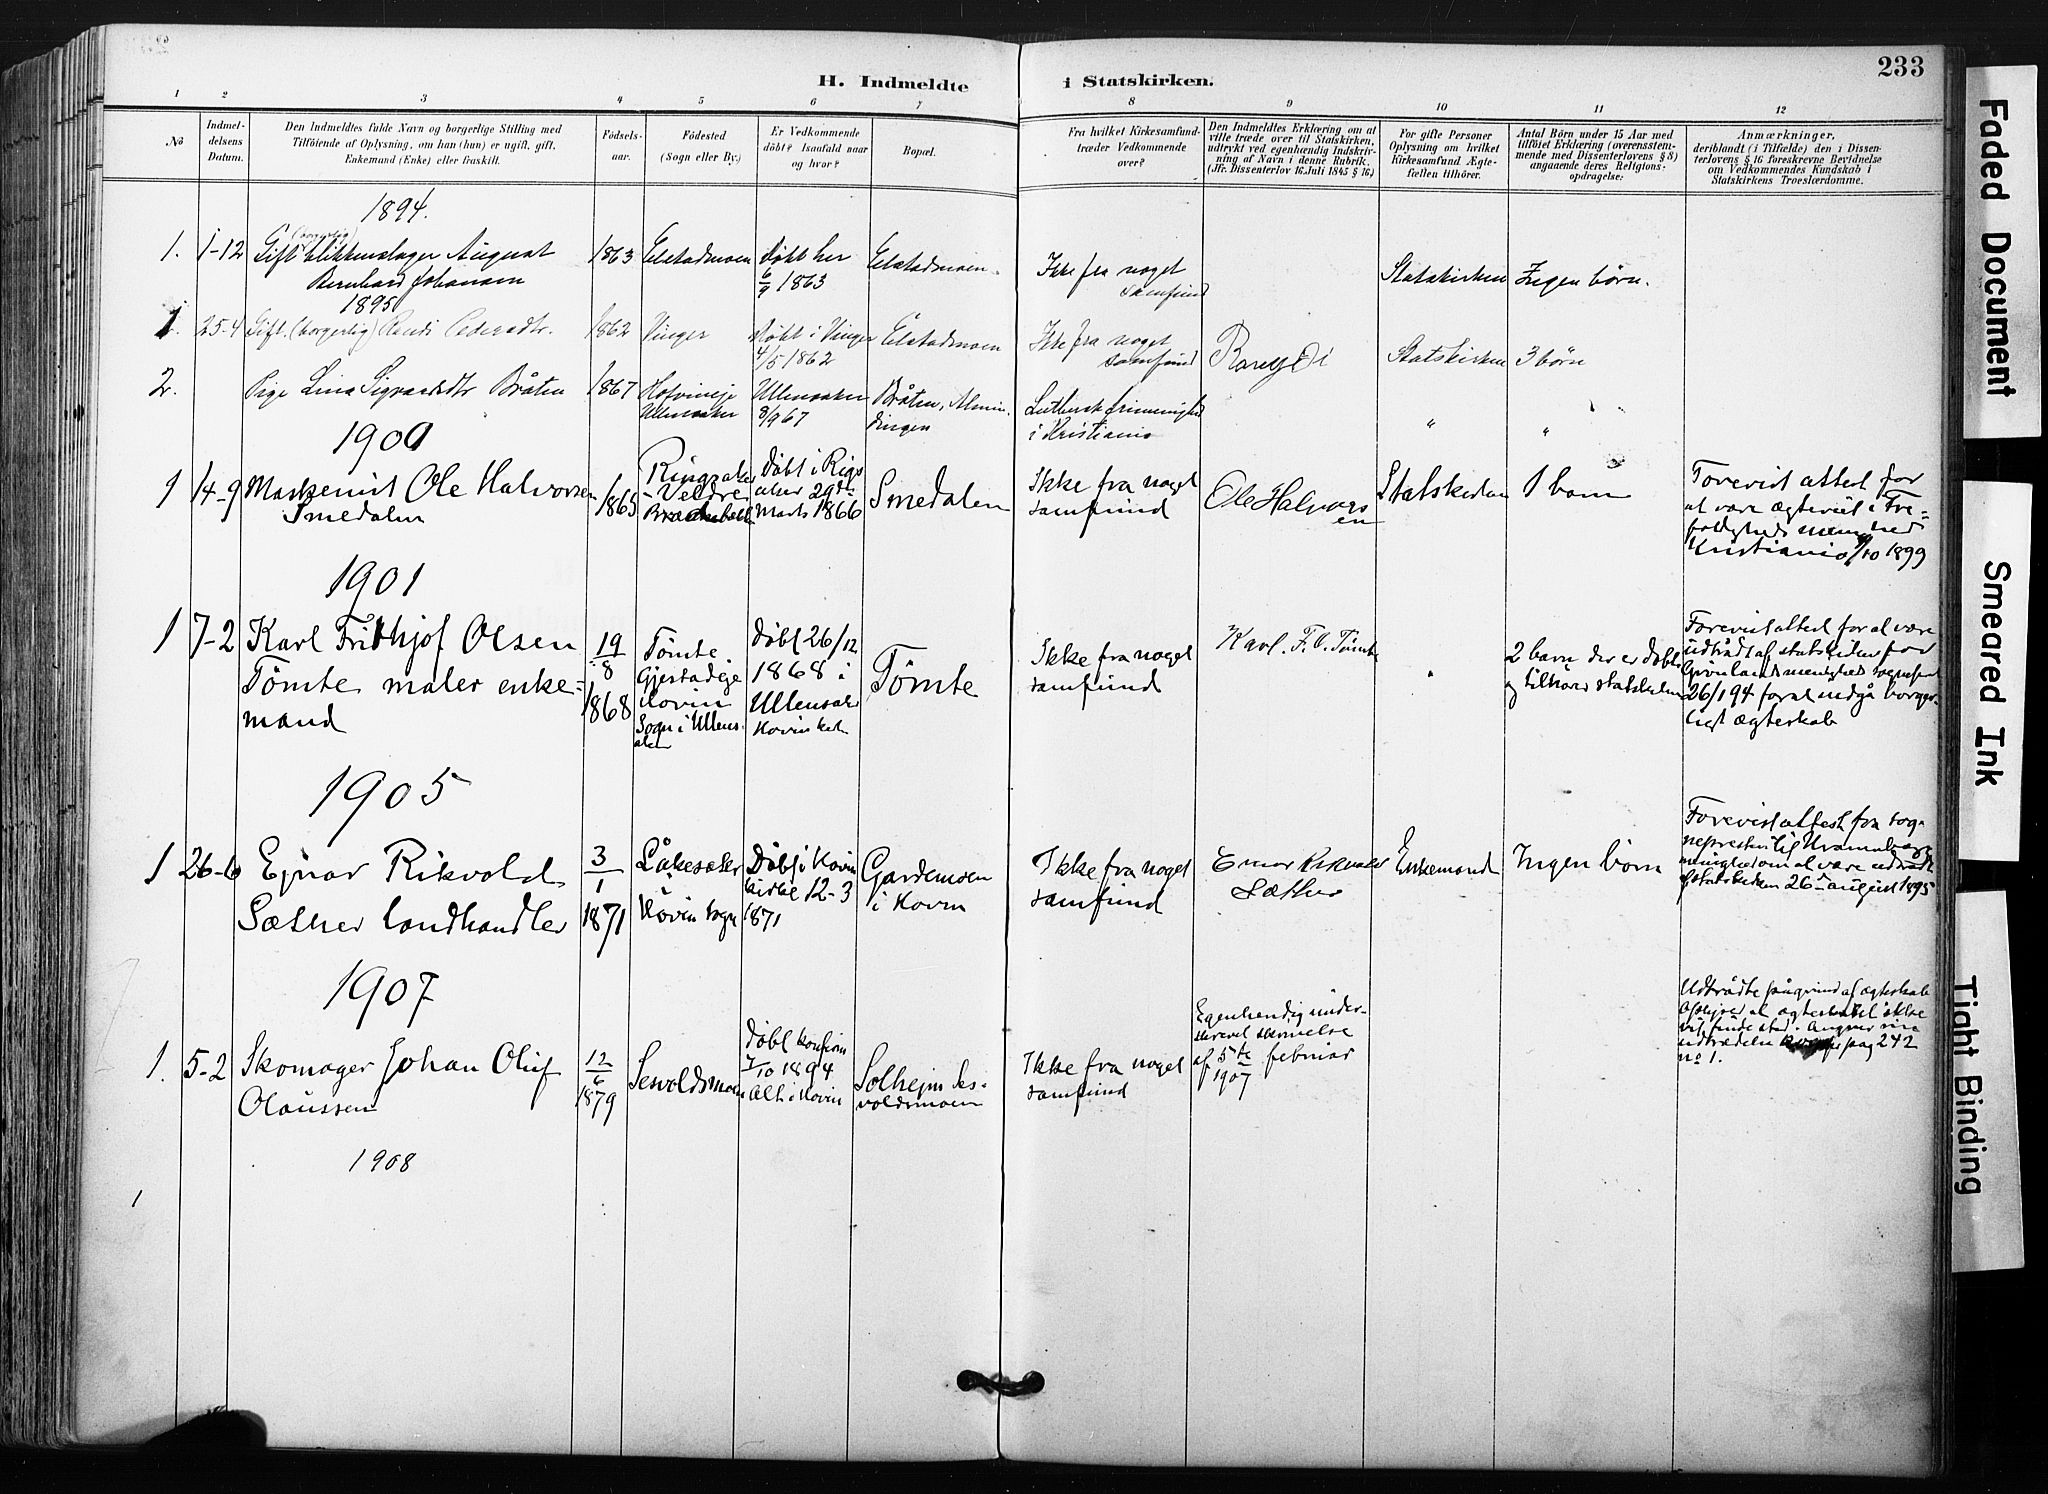 233
H. Indmeldte i Statskirken.
1 2 3 4 5 6 7 8 9 10 11 12
No
Indmel-
delsens
Datum.
Den Indmeldtes fulde Navn og borgerlige Stilling med
Tilföiende af Oplysning, om han (hun) er ugift, gift,
Enkemand (Enke) eller fraskilt.
Födsels-
aar.
Födested
(Sogn eller By.)
Er Vedkommende
döbt? Isaafald naar
og hvor?
Bopæl.
Fra hvilket Kirkesamfund
træder Vedkommende
over?
Den Indmeldtes Erklæring om at
ville træde over til Statskirken,
udtrykt ved egenhændig Indskriv-
ning af Navn i denne Rubrik.
(Jfr. Dissenterlov 16 Juli 1845 § 16)
For gifte Personer
Oplysning om hvilket
Kirkesamfund Ægte-
fællen tilhörer.
Antal Börn under 15 Aar med
tilföiet Erklæring (overensstem-
mende med Dissenterlovens § 8)
angaaende deres Religions-
opdragelse:
Anmærkninger,
deriblandt (i Tilfælde) den i Dissen-
terlovens § 16 foreskrevne Bevidnelse
om Vedkommendes Kundskab i
Statskirkens Troeslærdomme.
1894.
1. 1-12
(borgerlig)
Gift blikkenslager August
Bernhard Johansen
1863
Elstadmoen
Døbt her
6/9 1863
Elstadmoen.
Ikke fra noget
samfund
Statskirken
Ingen børn.
1895
1. 25-4
Gift (borgerlig) Randi Pedersdtr.
1862
Vinger
Døbt i Vinger
4/5 1862
Elstadmoen
Ikke fra noget
samfund
Statskirken
3 børn
2.
Pige Lina Sigvardsdtr Bråten
1867
Ullensaker
Ullensaker
8/9 67
Bråten, Almin-
dingen
Luthersk frimenighed
i Kristiania
"
"
1900
1 14-9
Maskenist Ole Halvorsen
Smedalen
1865
Ringsaker
Veldre
Døbt i Rigs
aker 29de
Marts 1866
Smedalen
Ikke fra noget
samfund
Ole Halvors
en
Statskirken
1 barn
Forevist attest for
at være ægteviet i Tre-
foldigheds menighed
Kristiania /10 1899
1901
1 7-2
Karl Frithjof Olsen
Tømte maler enke-
mand
19/8
1868
Tømte
Gjestadeje
Hovin
Sogn i Ullens-
aker
Døbt 26/12
1868 i
Ullensaker
Hovin
Tømte
Ikke fra noget
samfund
Karl. F. O. Tømte
"
2 barn der er døbt
og tilhører statskirken
Forevist attest for at være
udtrådt af statskirken for
Grønlands menighed
26/1 94 for at indgå borger-
ligt ægteskab
1905
1 26-6
Ejnar Rikvold
Sæther landhandler
3/1
1871
Låkesæter
Hovin sogn
Døbt i Hovin
kirke 12-3
1871
Gardemoen
i Hovin
Ikke fra noget
samfund
Einar Rikvold
Sæther
Enkemand
Ingen børn
Forevist attest fra sog-
nepresten til
menighed om at være udtrådt
af statskirken 26 august 1895
1907
1. 5-2
Skomager Johan Oluf
Olaussen
12/6
1879
Sesvoldsmoen
Døbt konfirm
7/10 1894
Alt i Hovin
Solhejm Ses-
voldsmoen
Ikke fra noget
samfund
Egenhendig under-
skrevet skrivelse
af 5te februar
1907
Udtrådte på grund af ægteskab
Oplyser at ægteskabet ikke
vil finde sted. Angrer sin
udtrædelse pag 242
no 1.
1908
1
Faded Document
Smeared Ink
Tight Binding